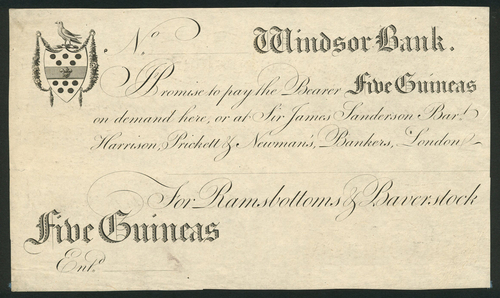 No. Windsor Bank.
I Promise to pay the Bearer Five Guineas
on demand here, or at Sir James Sanderson Bart.
Harrison, Prickett & Newman's, Bankers, London
For Ramsbottoms & Baverstock
Five Guineas
Entd.